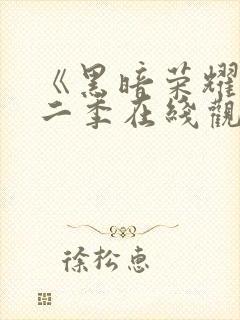 《黑暗荣耀
二季在线觀
徐松惠